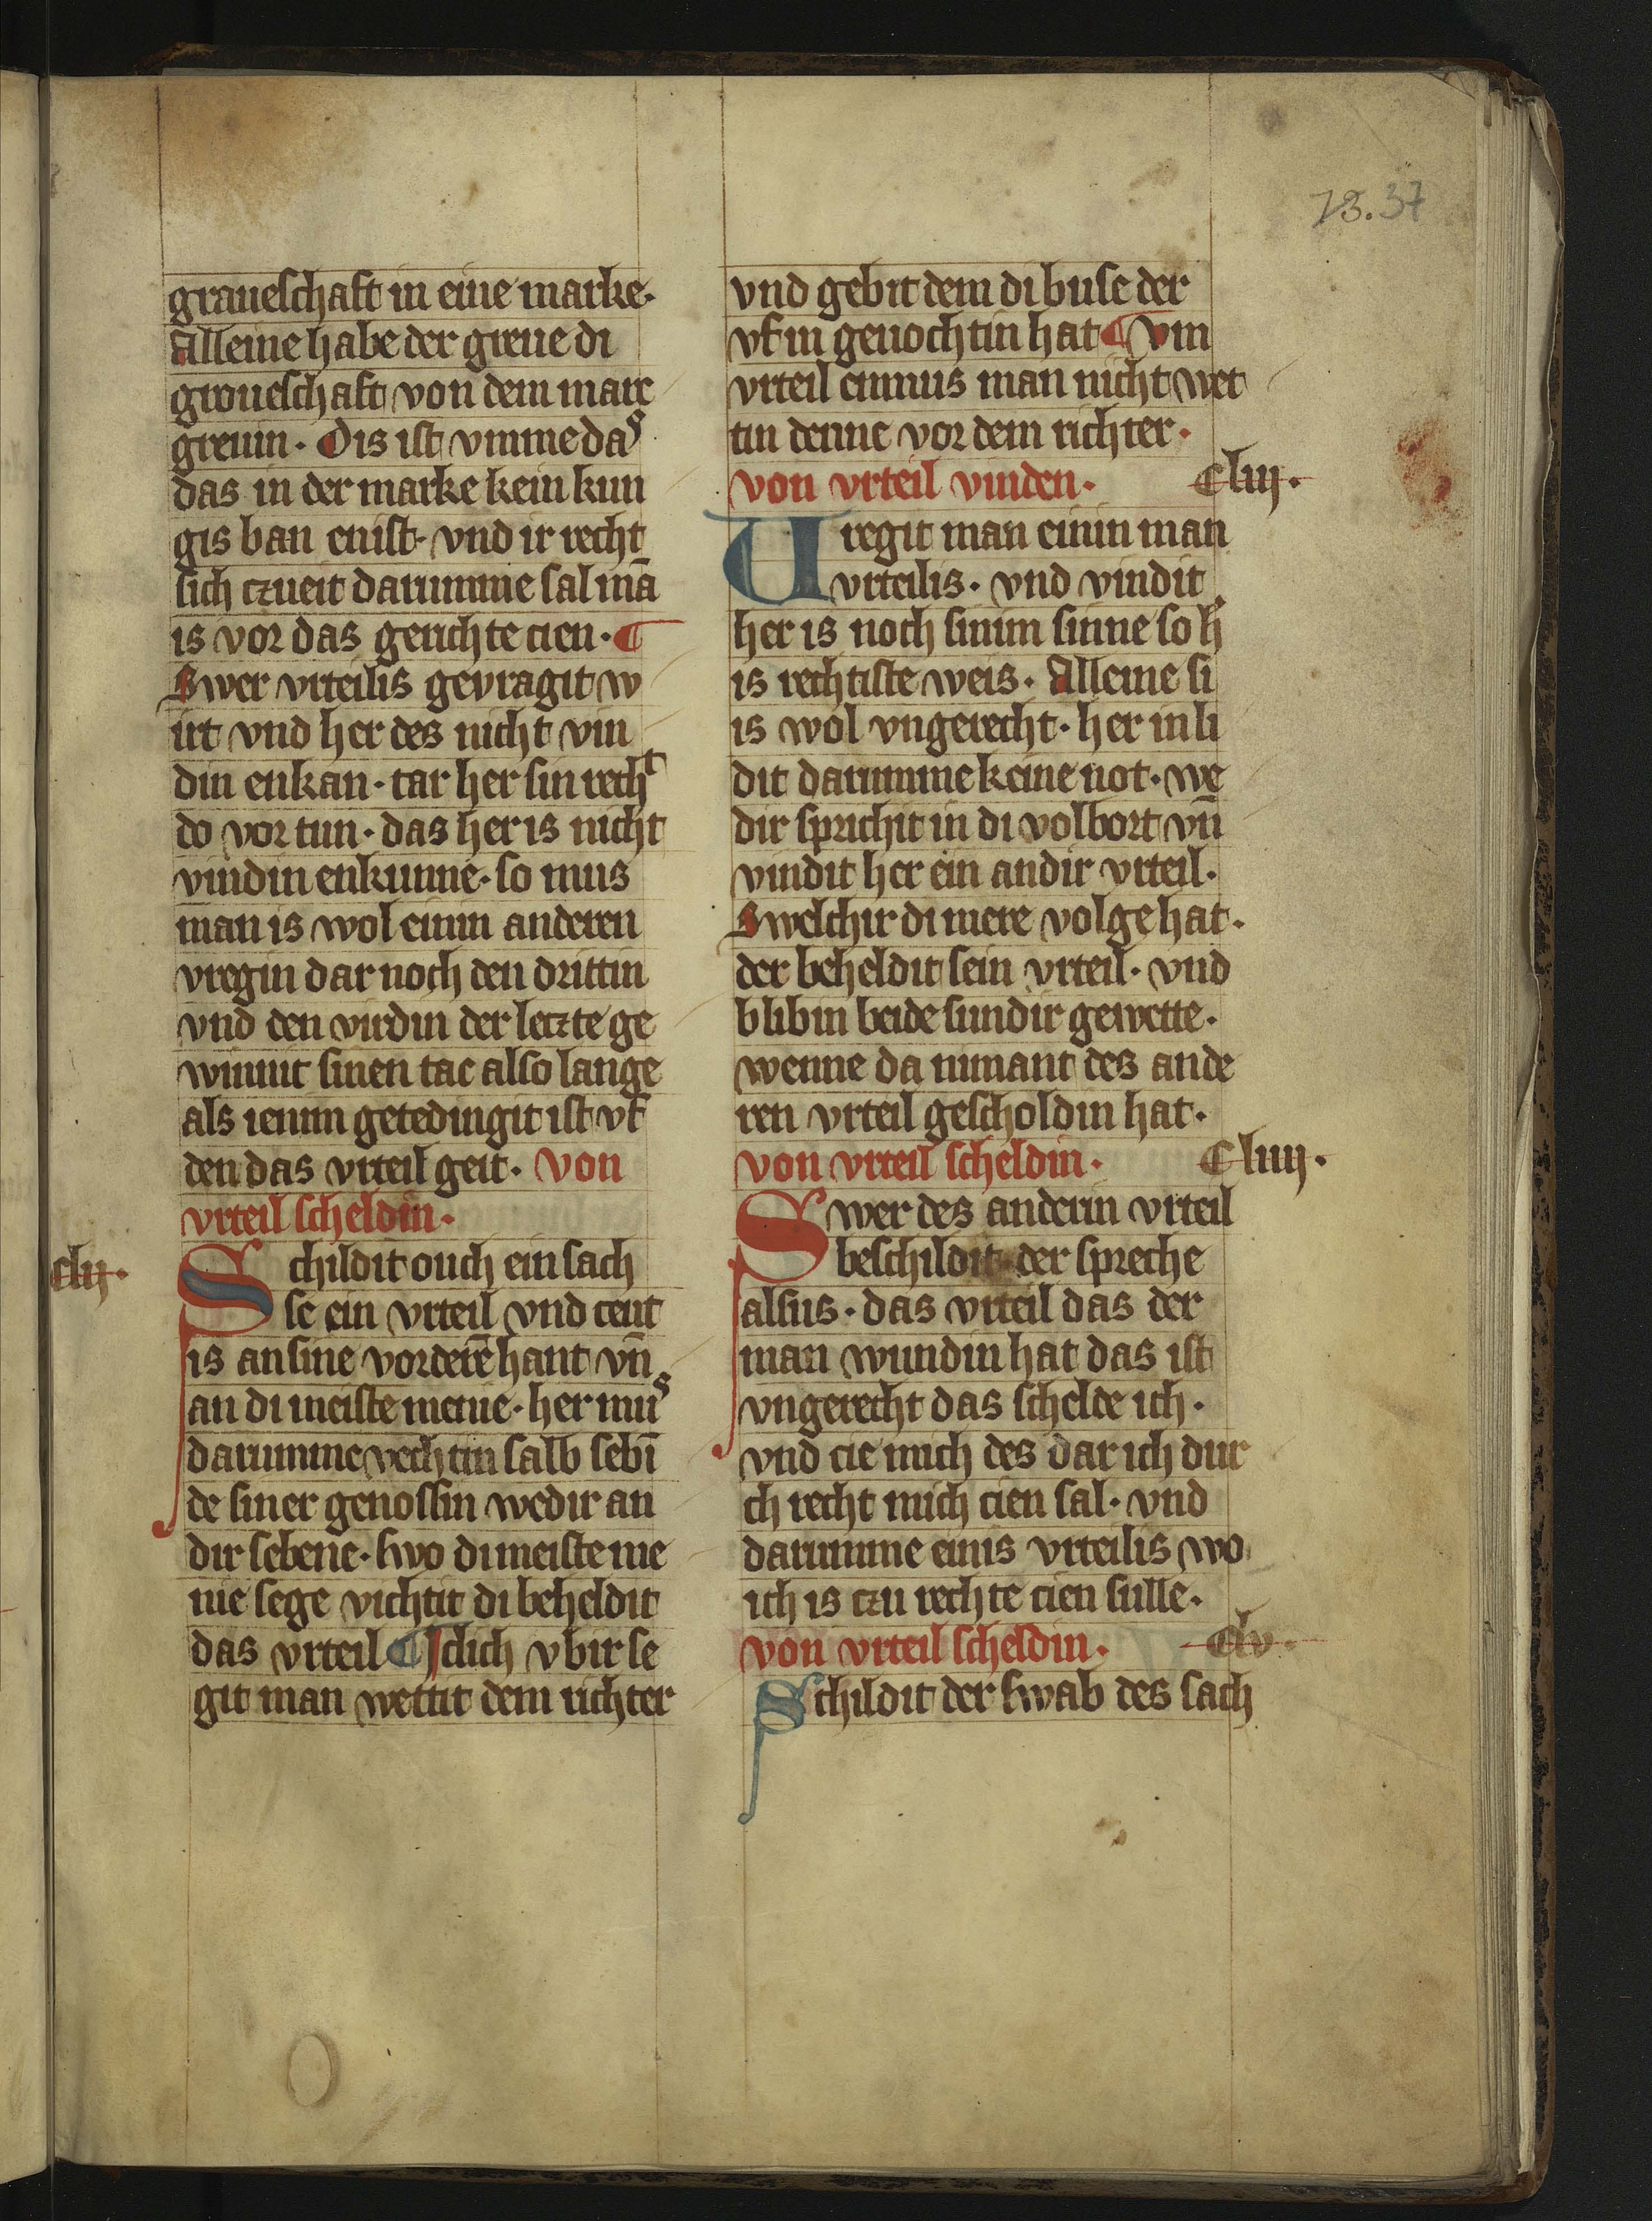 73.37
graueschaft in eine marke·
Alleine habe der greue di
groueschaft von dem marc
greuin· Dis ist vmme das
das in der marke kein kun
gis ban enist· vnd ir recht
sich czueit darumme sal mā
is vor das gerichte cien· ¶
Swer vrteilis gevragit w
irt vnd her des nicht vin
din enkan· tar her sin recht
do vor tun· das her is nicht
vindin enkunne· so mus
man is wol einin anderen
vregin dar noch den drittin
vnd den virdin der leczte ge
winnit sinen tac also lange
als ienim getedingit ist vf
den das vrteil geit· von
vrteil scheldin·
clij·
Schildit ouch ein sach
se ein vrteil vnd ceut
is an sine vorderē hant vn̄
an di meiste menie· her mus
darumme vechtin salb sebī
de siner genossin wedir an
dir sebene· swo di meiste me
nie sege vichtit di beheldit
das vrteil ¶ Iclich vbir se
git man wettit dem richter
vnd gebit dem di buse der
vf in gevochtin hat ¶ Vm
vrteil enmus man nicht wet
tin denne vor dem richter·
von vrteil vinden· Cliij·
Uregit man einin man
vrteilis· vnd vindit
her is noch sinim sinne so h̓
is rechtiste weis· Alleine si
is wol vngerecht· her inli
dit darumme keine not· we
dir sprichit in di volbort vn̄
vindit her ein andir vrteil·
Swelchir di mere volge hat·
der beheldit sein vrteil· vnd
blibin beide sundir gewette·
wenne da nimant des ande
ren vrteil gescholdin hat·
von vrteil scheldin· Cliiij·
Swer des anderin vrteil
beschildit· der spreche
alsus· das vrteil das der
man wundin hat das ist
vngerecht das schelde ich·
vnd cie mich des dar ich dur
ch recht mich cien sal· vnd
darumme einis vrteilis wo
ich is czu rechte cien sulle·
von vrteil scheldin· Clv·
Schildit der swab des sach